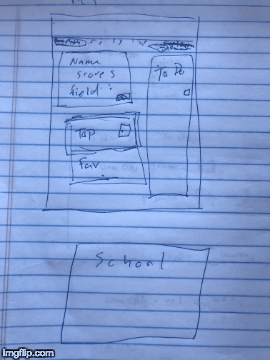 Name
scores
field :
To Do
Top
Fav
School
imgflip.com